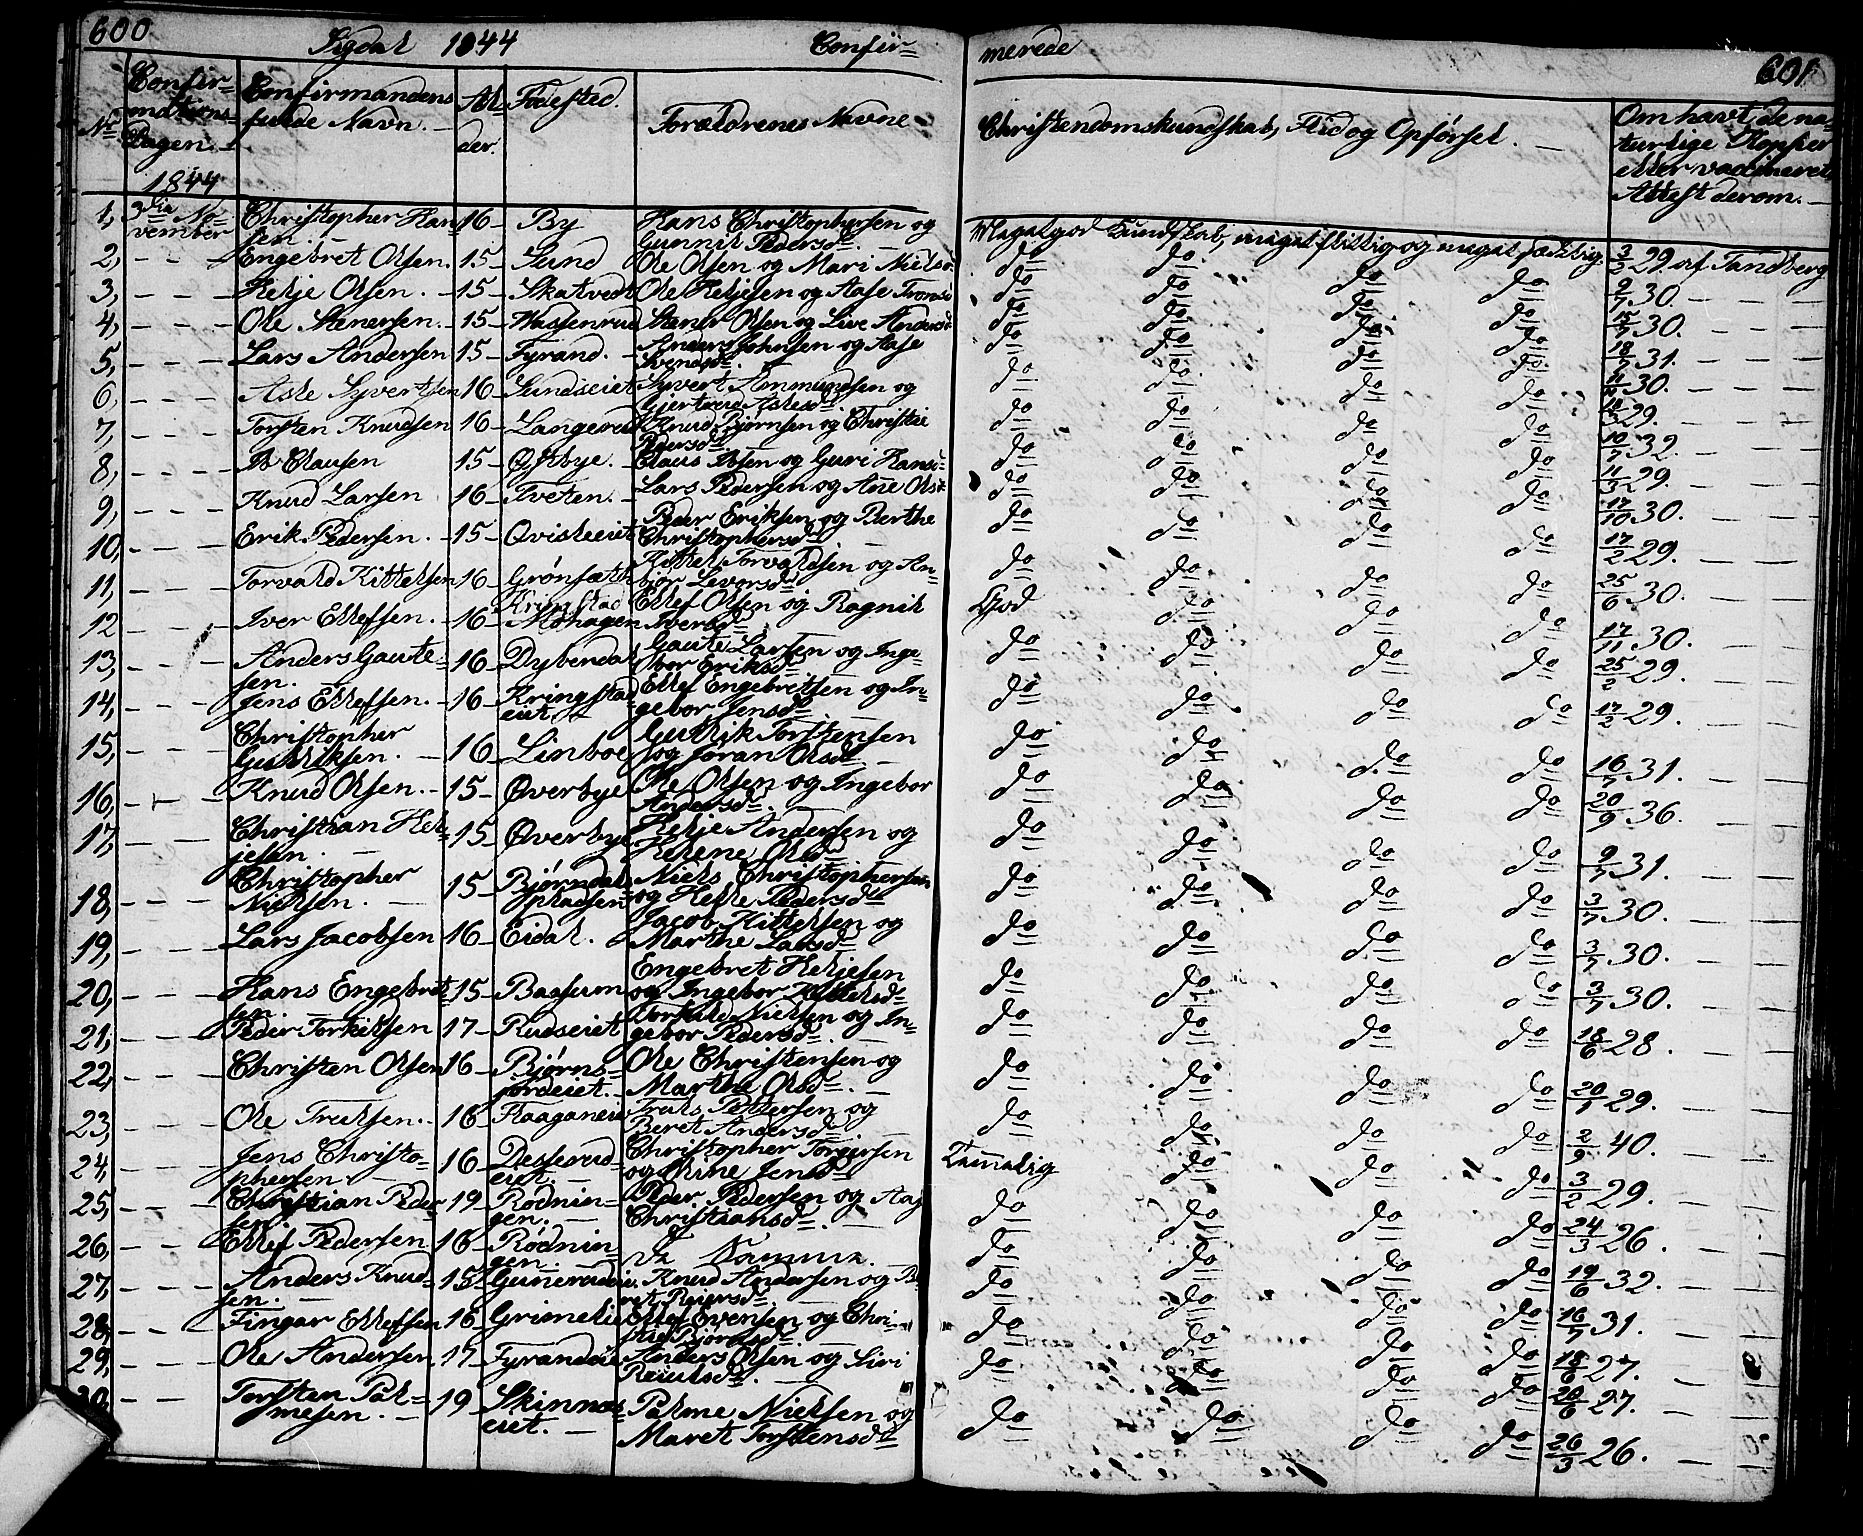 600
Sigdal 1844 Confir-
merede
601
No
Confir-
mations-
Dagen.
1844
Confirmandens
fulde Navn.
Al-
der.
Fødested.
Forældrenes Navne
Christendomskundskab, Flid og Opførsel.
Om havt de na-
turlige Kopper
eller vaccineret,
Attest derom.
1, 3die No- Christopher Han- 16 By Hans Christophersen og Megetgod Kundskab, meget flittig og meget sædelig. 3/7 29. af Tandberg
vember sen. Gunnil Pedersd.
2, Engebret Olsen. 15 Lund Ole Olsen og Mari Nielsd. do do do do 2/7 30.
3, Helje Olsen. 15 Skatvedt Ole Heljesen og Aase Tronsd. do do do do 30.
4, Ole Stenersen. 15 Wassenrud Stener Olsen og Live Andersd. do do do do 18/7 31.
5, Lars Andersen 15 Fyrand. Anders Johnsen og Aase do do do do 30.
Svendsd.
6, Asle Syvertsen 16 Lundseiet Syvert Ammundsen og do do do do 29.
Gjertrud Aslesd.
7, Torsten Knudsen 16 Langerud Knud Bjørnsen og Christie do do do do 10/7 32.
Pedersd.
8, Ib Clausen 15 Østbye. Claus Ibsen og Guri Hansd. do do do do 11/3 29.
9, Knud Larsen 16 Tveten. Lars Pedersen og Ane Olsd. do do do do 17/10 30.
10, Erik Pedersen. 15 Qvisleeiet Peder Eriksen og Berthe do do do do 17/2 29.
Christophersd.
11, Torvald Kittelsen 16 Grønsæth Kittel Torvaldsen og An- do do do do 25/6 30.
bor Levorsd.
12 Iver Ellefsen. 16 Kringstad Ellef Olsen og Ragnil God do do do 17/11 30.
Mohagen Iversd.
13, Anders Gaute- 16 Dyberdal Gaute Larsen og Inge- do do do do 25/2 29.
sen. bor Eriksd.
14, Jens Ellefsen. 16 Kringstad Ellef Engebretsen og In- do do do do 17/2 29.
eiet gebor Jensd.
15, Christopher 16 Linboe Gulbrik Torstensen do do do do 16/7 31.
Gulbriksen. og Jøran Olsd.
16, Knud Olsen. 15 Øverbye Ole Olsen og Ingebor do do do do 20/9 36.
Andersd.
17, Christian Hel- 15 Øverbye Helje Andersen og do do do do 9/7 31.
jesen. Helene Olsd.
18, Christopher 15 Bjørndals Niels Christophersen do do do do 3/7 30.
Nielsen. pladsen og Helle Pedersd.
19, Lars Jacobsen 16 Eidal. Jacob Kittelsen og do do do do 3/7 30.
Marthe Larsd.
20, Hans Engebret- 15 Baasum Engebret Heljesen do do do do 3/7 30.
sen og Ingebor Kittelsd.
21, Peder Torkilsen 17 Rudseiet Torkild Nielsen og In- do do do do 18/6 28.
gebor Pedersd.
22, Christen Olsen 16 Bjørns- Ole Christensen og do do do do 20/1 29.
jordeiet. Marthe Olsd.
23, Ole Trulsen. 16 Raaganeie Truls Pettersen og do do do do 2/9 40.
Beret Andersd.
24, Jens Christo- 16 Desserud- Christopher Torgersen Tammelig do do do 3/2 29.
phersen eiet. og Jensd.
25, Christian Peder- 19 Rødnin- Peder Pedersen og Aag- do do do do 24/3 26.
sen gen. Christiansd.
26, Ellef Pedersen 16 Rødnin- do do do do 19/6 32.
gen.
27, Anders Knud- 15 Gunerudeie. Knud Andersen og Be- do do do do 16/7 31.
sen. ret Reiersd.
28, Fingar Ellefsen 16 Grimelie Ellef Evensen og Chri- do do do do 18/6 27.
stie Bjørnsd.
29, Ole Andersen 17 Fyrandeie Anders Olsen og Siri do do do do 20/6 27.
30, Torsten Pal- 19 Skinnes- Palme Nielsen og do do do do 26/3 26.
mesen. eiet. Maret Torstensd.